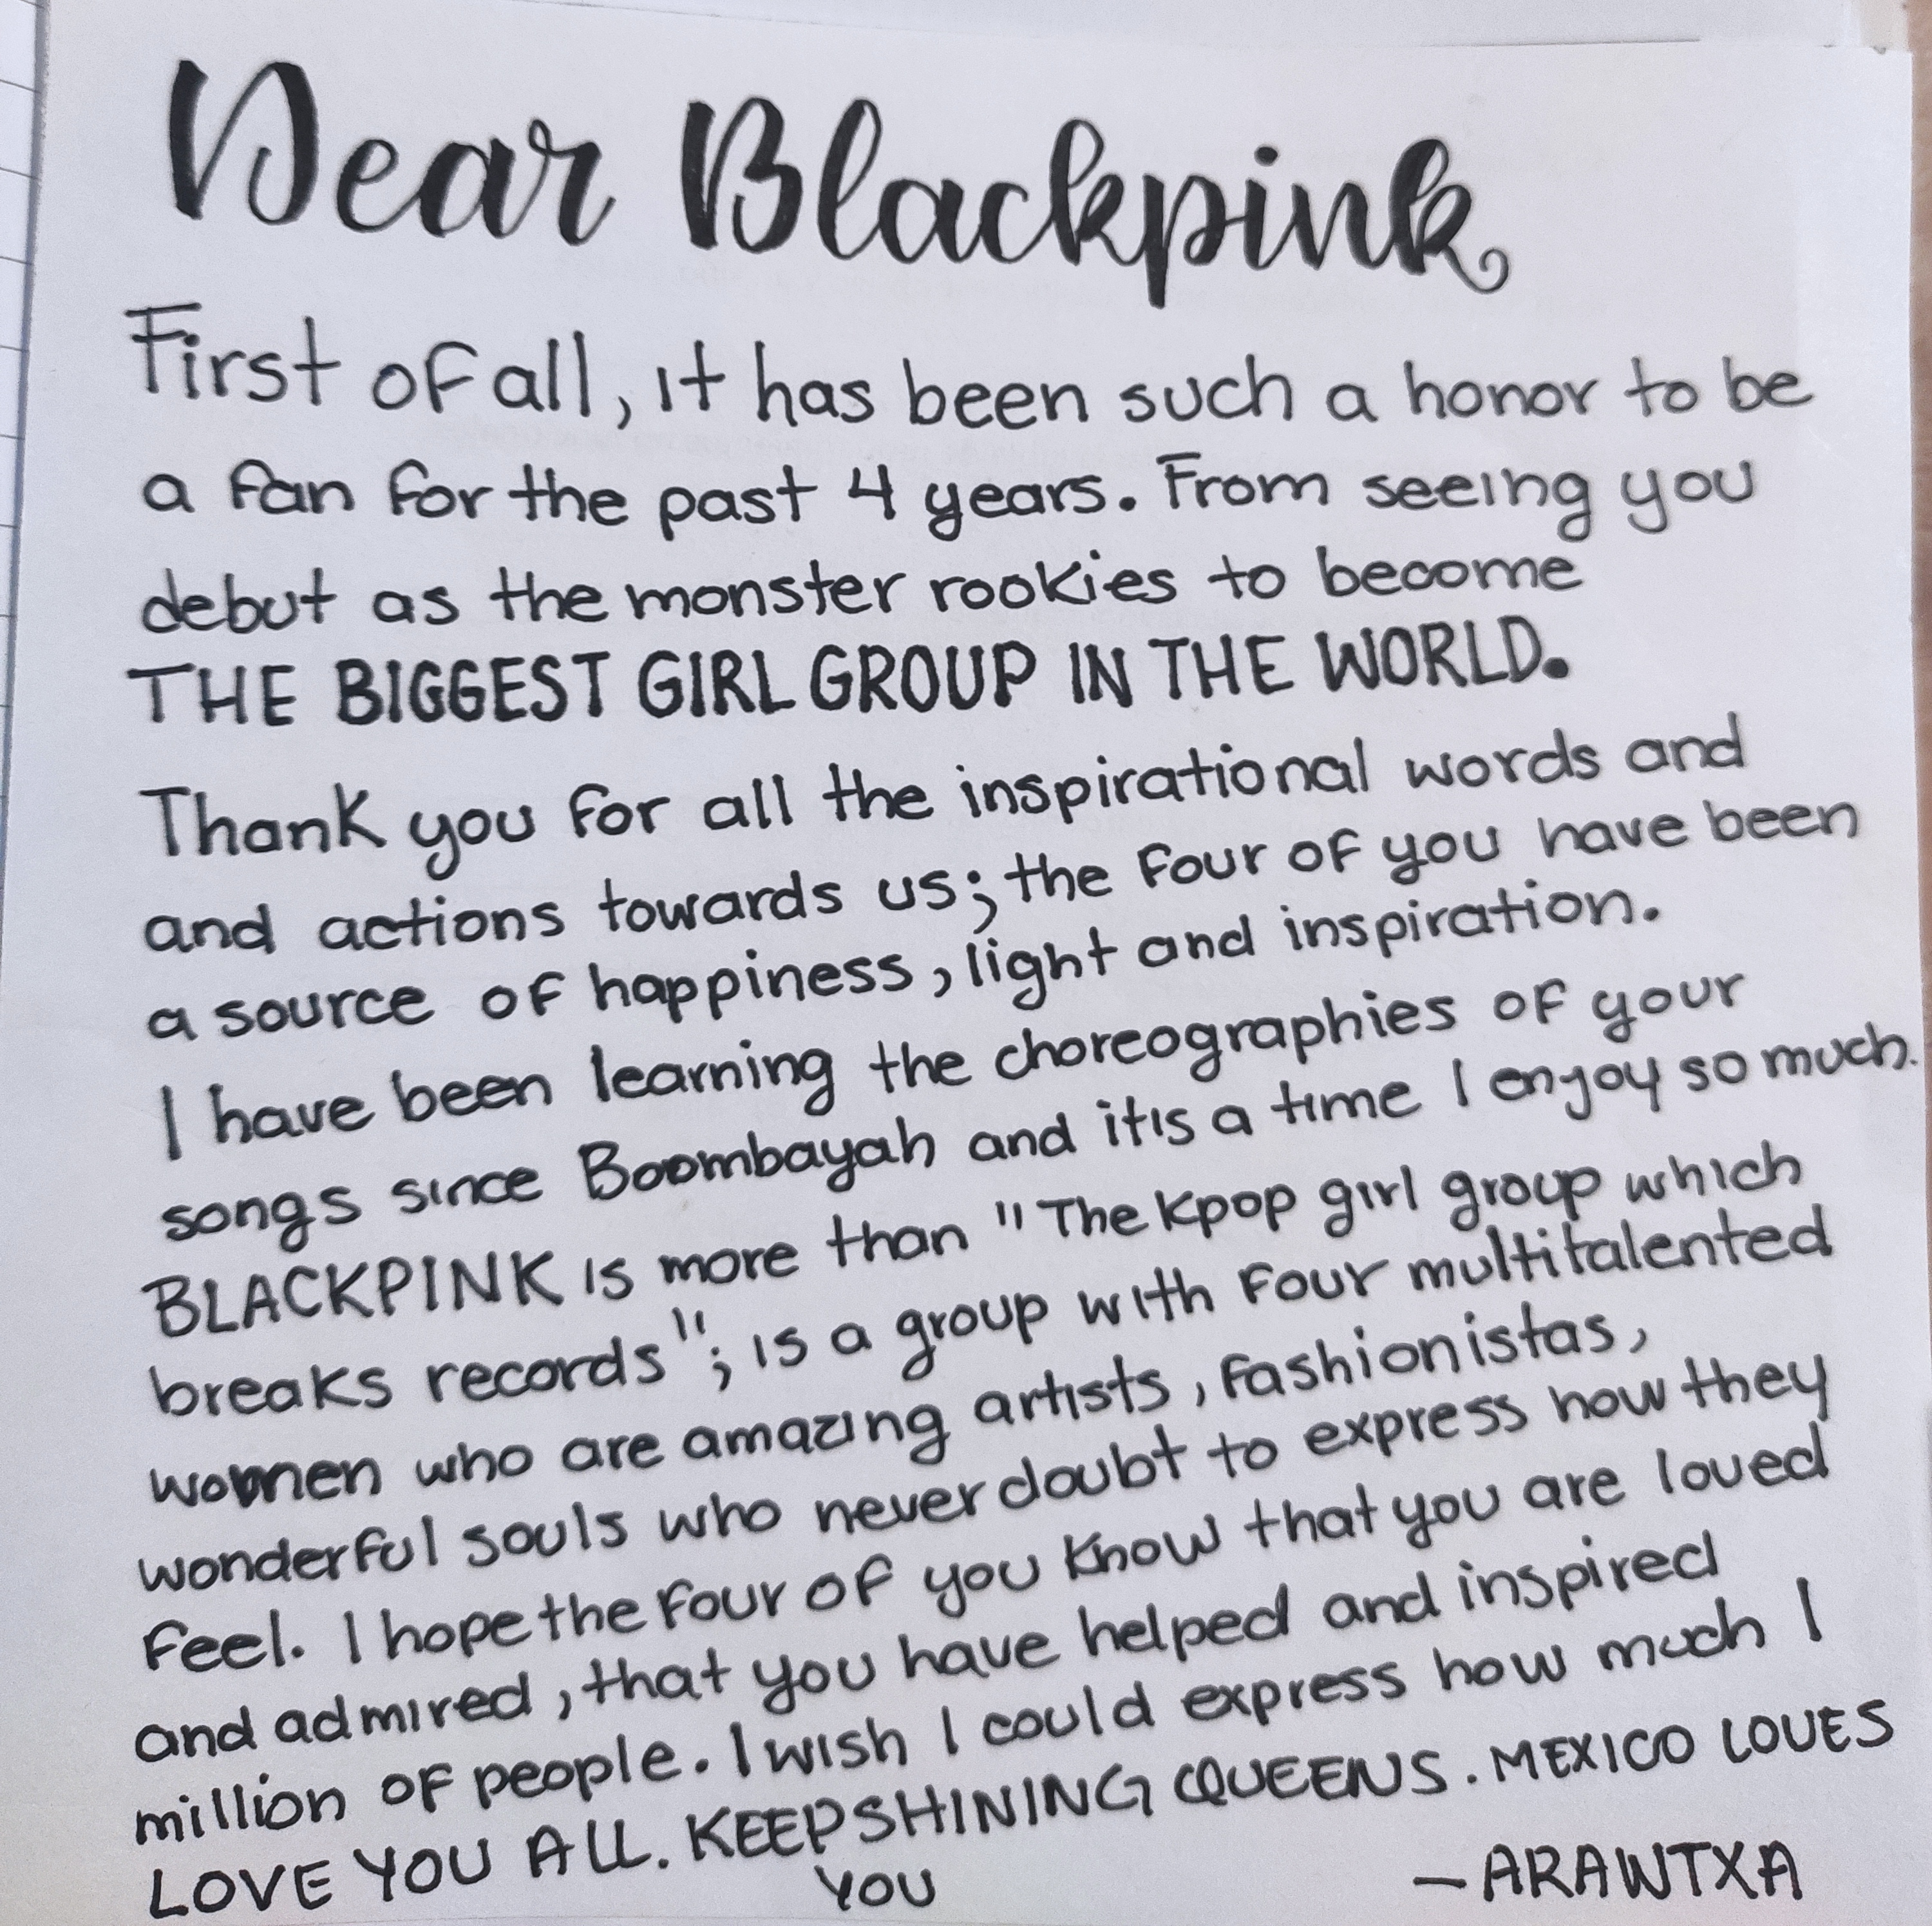 Dear Blackpink
First of all, it has been such a honor to be
a fan for the past 4 years. From seeing you
debut as the monster rookies to become
THE BIGGEST GIRL GROUP IN THE WORLD.
Thank you for all the inspirational words and
and actions towards us; the four of you have been
a source of happiness, light and inspiration.
I have been learning the choreographies of your
songs since Boombayah and it is a time I enjoy so much.
BLACKPINK is more than "The Kpop girl group which
breaks records"; is a group with four multitalented
women who are amazing artists, fashionistas,
wonderful souls who never doubt to express how they
feel. I hope the four of you know that you are loved
and admired, that you have helped and inspired
million of people. I wish I could express how much I
LOVE YOU ALL. KEEP SHINING QUEENS. MEXICO LOVES
YOU
—ARAWTXA